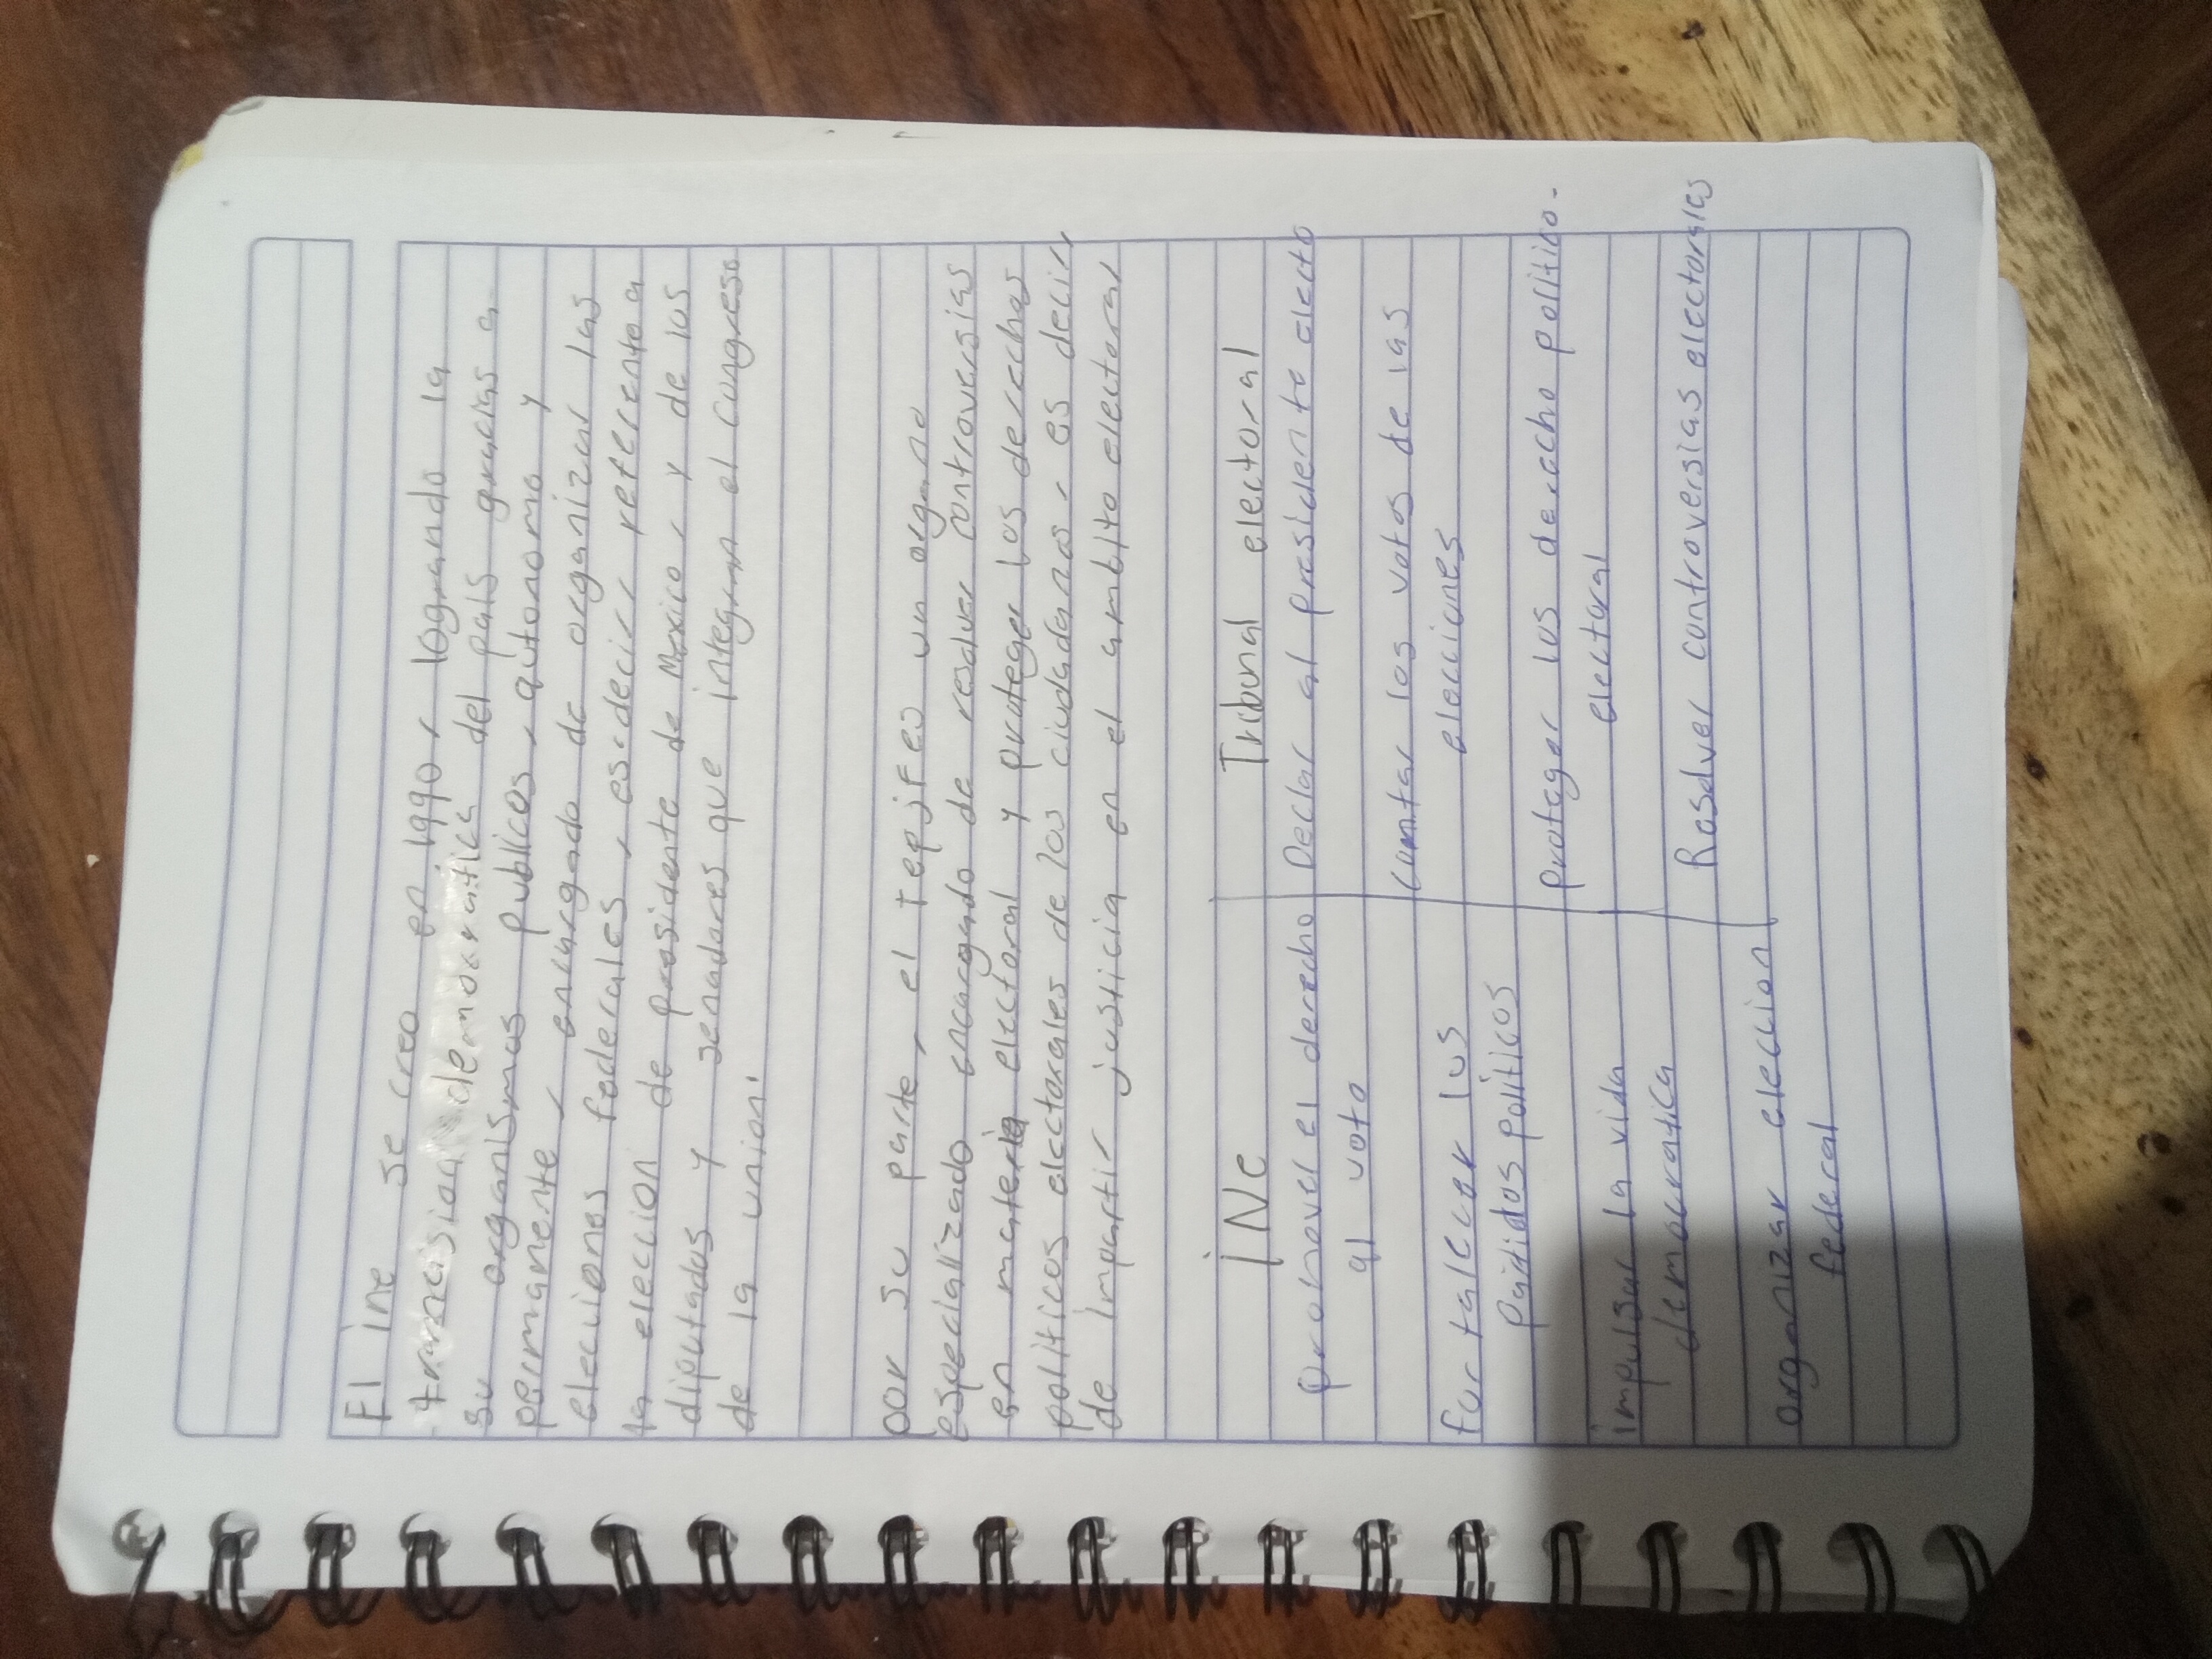 El ine se creo en 1990, logrando la
transision democratica del pais gracias a
su organismos publicos, autonomo y
permanente, encargado de organizar las
elecciones federales, es decir referente a
la eleccion de presidente de Mexico, y de los
diputados y senadores que integran el congreso
de la union.
por su parte, el tepjf es un organo
especializado encargado de resolver controversias
en materia electoral y proteger los derechos
politicos electorales de los ciudadanos, es decir
de impartir justicia en el ambito electoral
INe
Tribunal electoral
promover el derecho
al voto
Declar al presidente electo
Contar los votos de las
elecciones
fortalecer los
Patidos politicos
proteger los derecho politico-
electoral
impulsar la vida
democratica
Resolver controversias electorales
organizar eleccion
federal